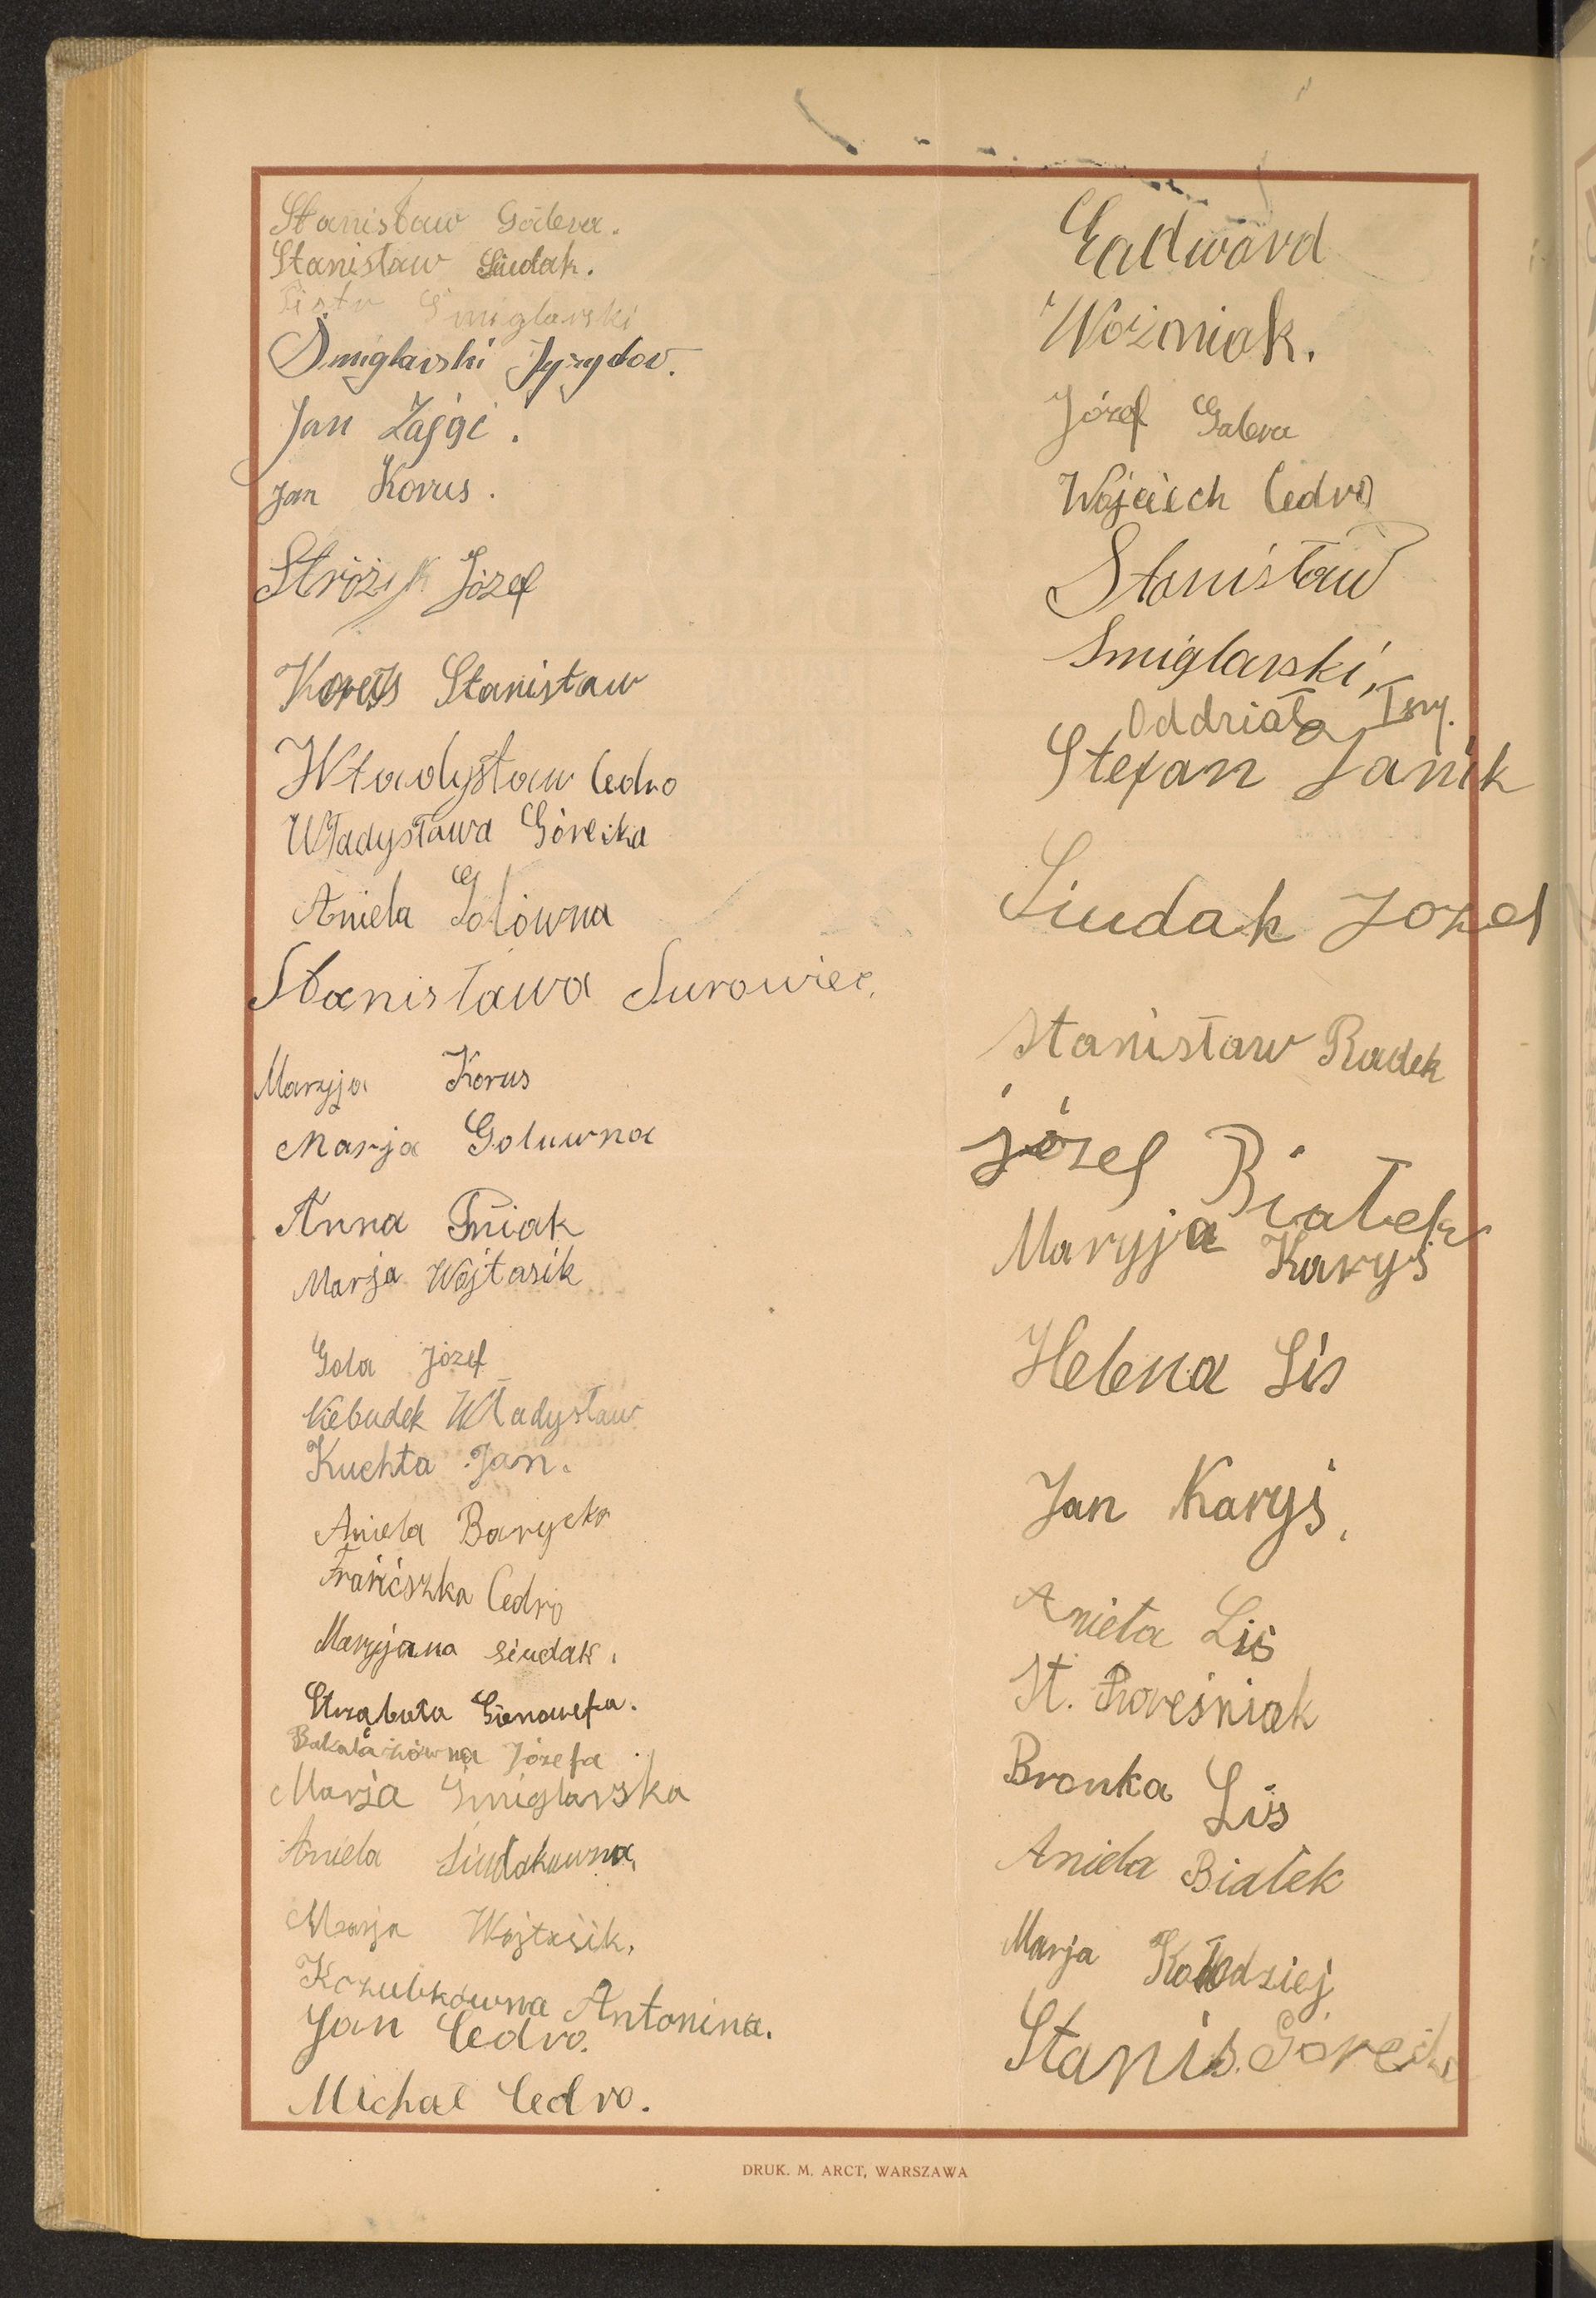 Stanisław Galera.
Stanisław Siudak.
Piotr Śmiglarski
Śmiglarski Jzydor.
Jan Zajęc.
Jan Korus.
Stróżyk Józef
Korus Stanisław
Władysław Cedro
Władysława Górecka
Aniela Golówna
Stanisława Surowiec.
Maryja Korus
Marja Goluwna
Anna Pniak
Marja Wojtasik
Gola Józef
Niebudek Władysław
Kuchta Jan.
Aniela Barycka
Franciszka Cedro
Maryjana Siudak.
Strząbała Gienowefa.
Bakalarzówna Józefa
Marja Śmiglarska
Aniela Siudakuwna.
Marja Wojtasik.
Kozubkówna Antonina.
Jan Cedro.
Michał Cedro.
Eadward
Woźniak.
Józef Galera
Wojciech Cedro
Stanisław
Śmiglarski,
Oddziała I szy.
Stefan Janik
Siudak Jozef
Stanisław Radek
józef Białek
Maryja Karyś
Helena Lis
Jan Karyś,
Aniela Lis
St. Rześniak
Bronka Lis
Aniela Białek
Marja Kołodziej
Stanis. Górecki
DRUK. M. ARCT, WARSZAWA